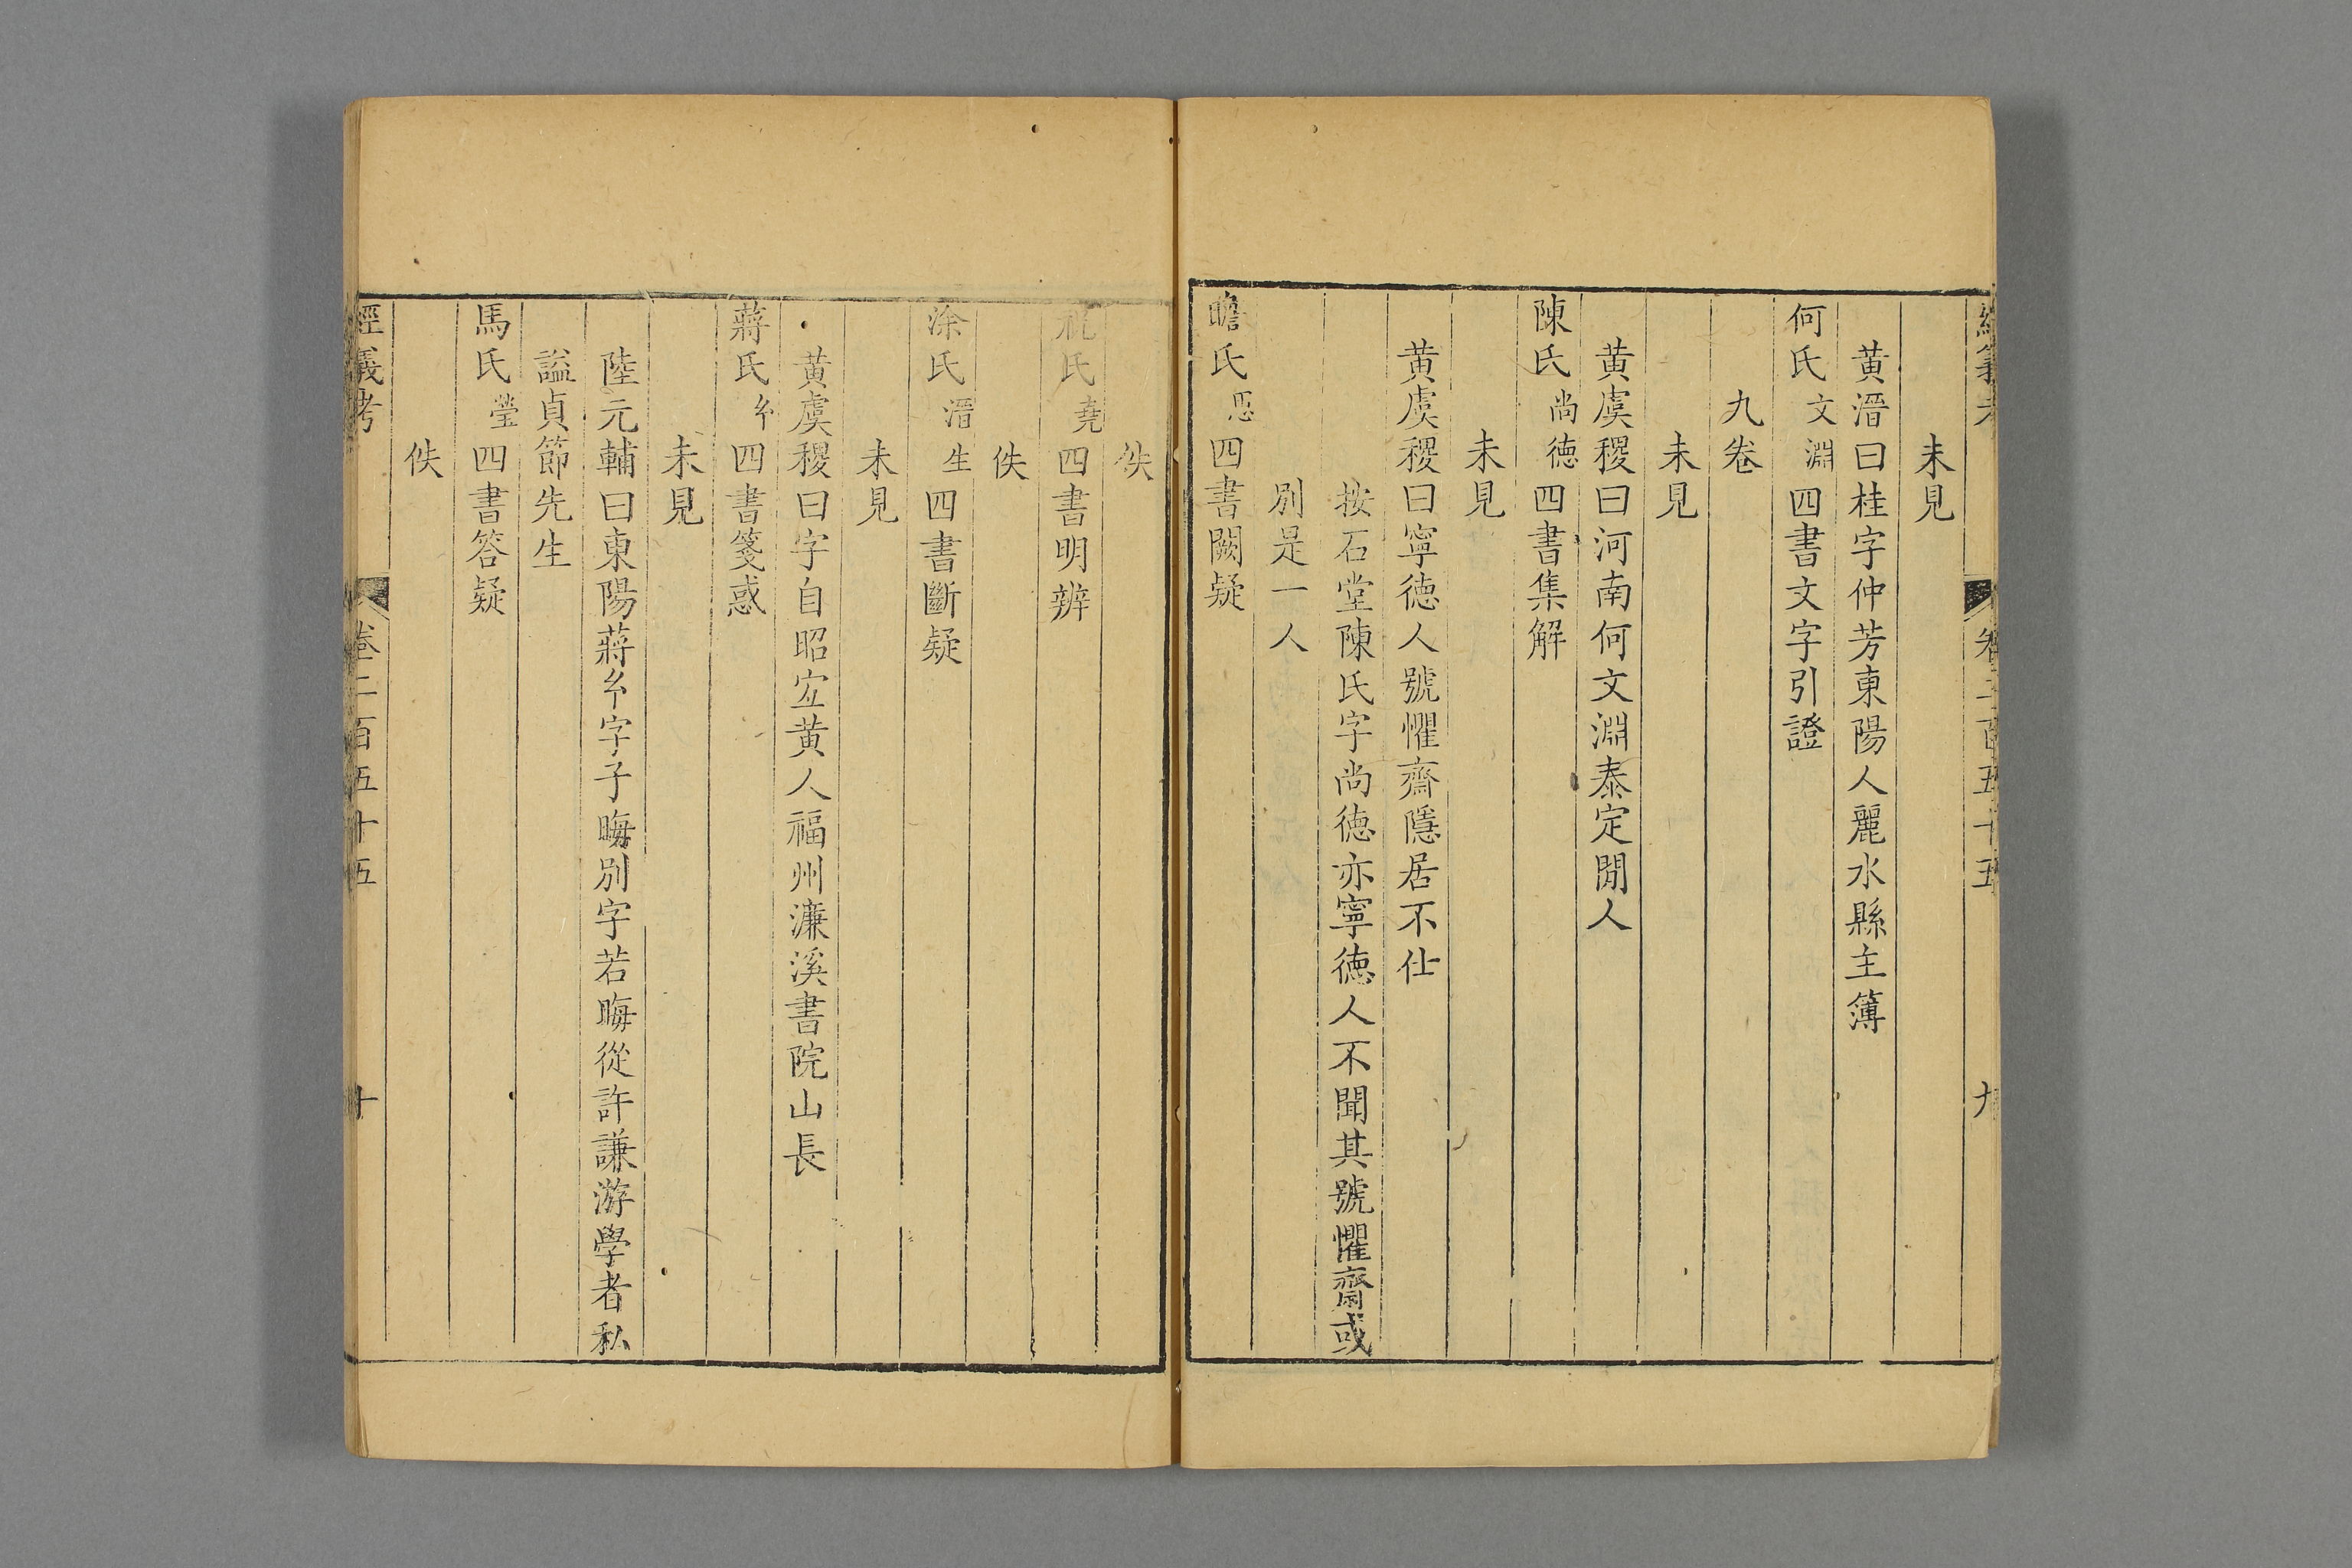 經義考 卷二百五十五 九
未見
黃溍曰桂字仲芳東陽人麗水縣主簿
何氏文淵四書文字引證
九卷
未見
黃虞稷曰河南何文淵泰定閒人
陳氏尚德四書集解
未見
黃虞稷曰寧德人號懼齋隱居不仕
按石堂陳氏字尚德亦寧德人不聞其號懼齋或
別是一人
瞻氏思四書闕疑
佚
祝氏堯四書明辨
佚
涂氏溍生四書斷疑
未見
黃虞稷曰字自昭宜黃人福州濂溪書院山長
蔣氏𢆯四書箋惑
未見
陸元輔曰東陽蔣𢆯字子晦別字若晦從許謙游學者私
謚貞節先生
馬氏瑩四書答疑
佚
經義考 卷二百五十五 十